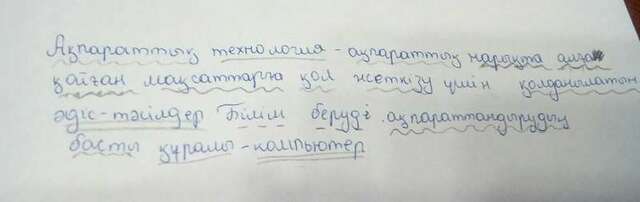 Ақпараттық технология - ақпараттық нарықта алға
қойған мақсаттарға қол жеткізу үшін қолданылатын
әдіс-тәсілдер Білім беруді ақпараттандырудың
басты құралы - компьютер